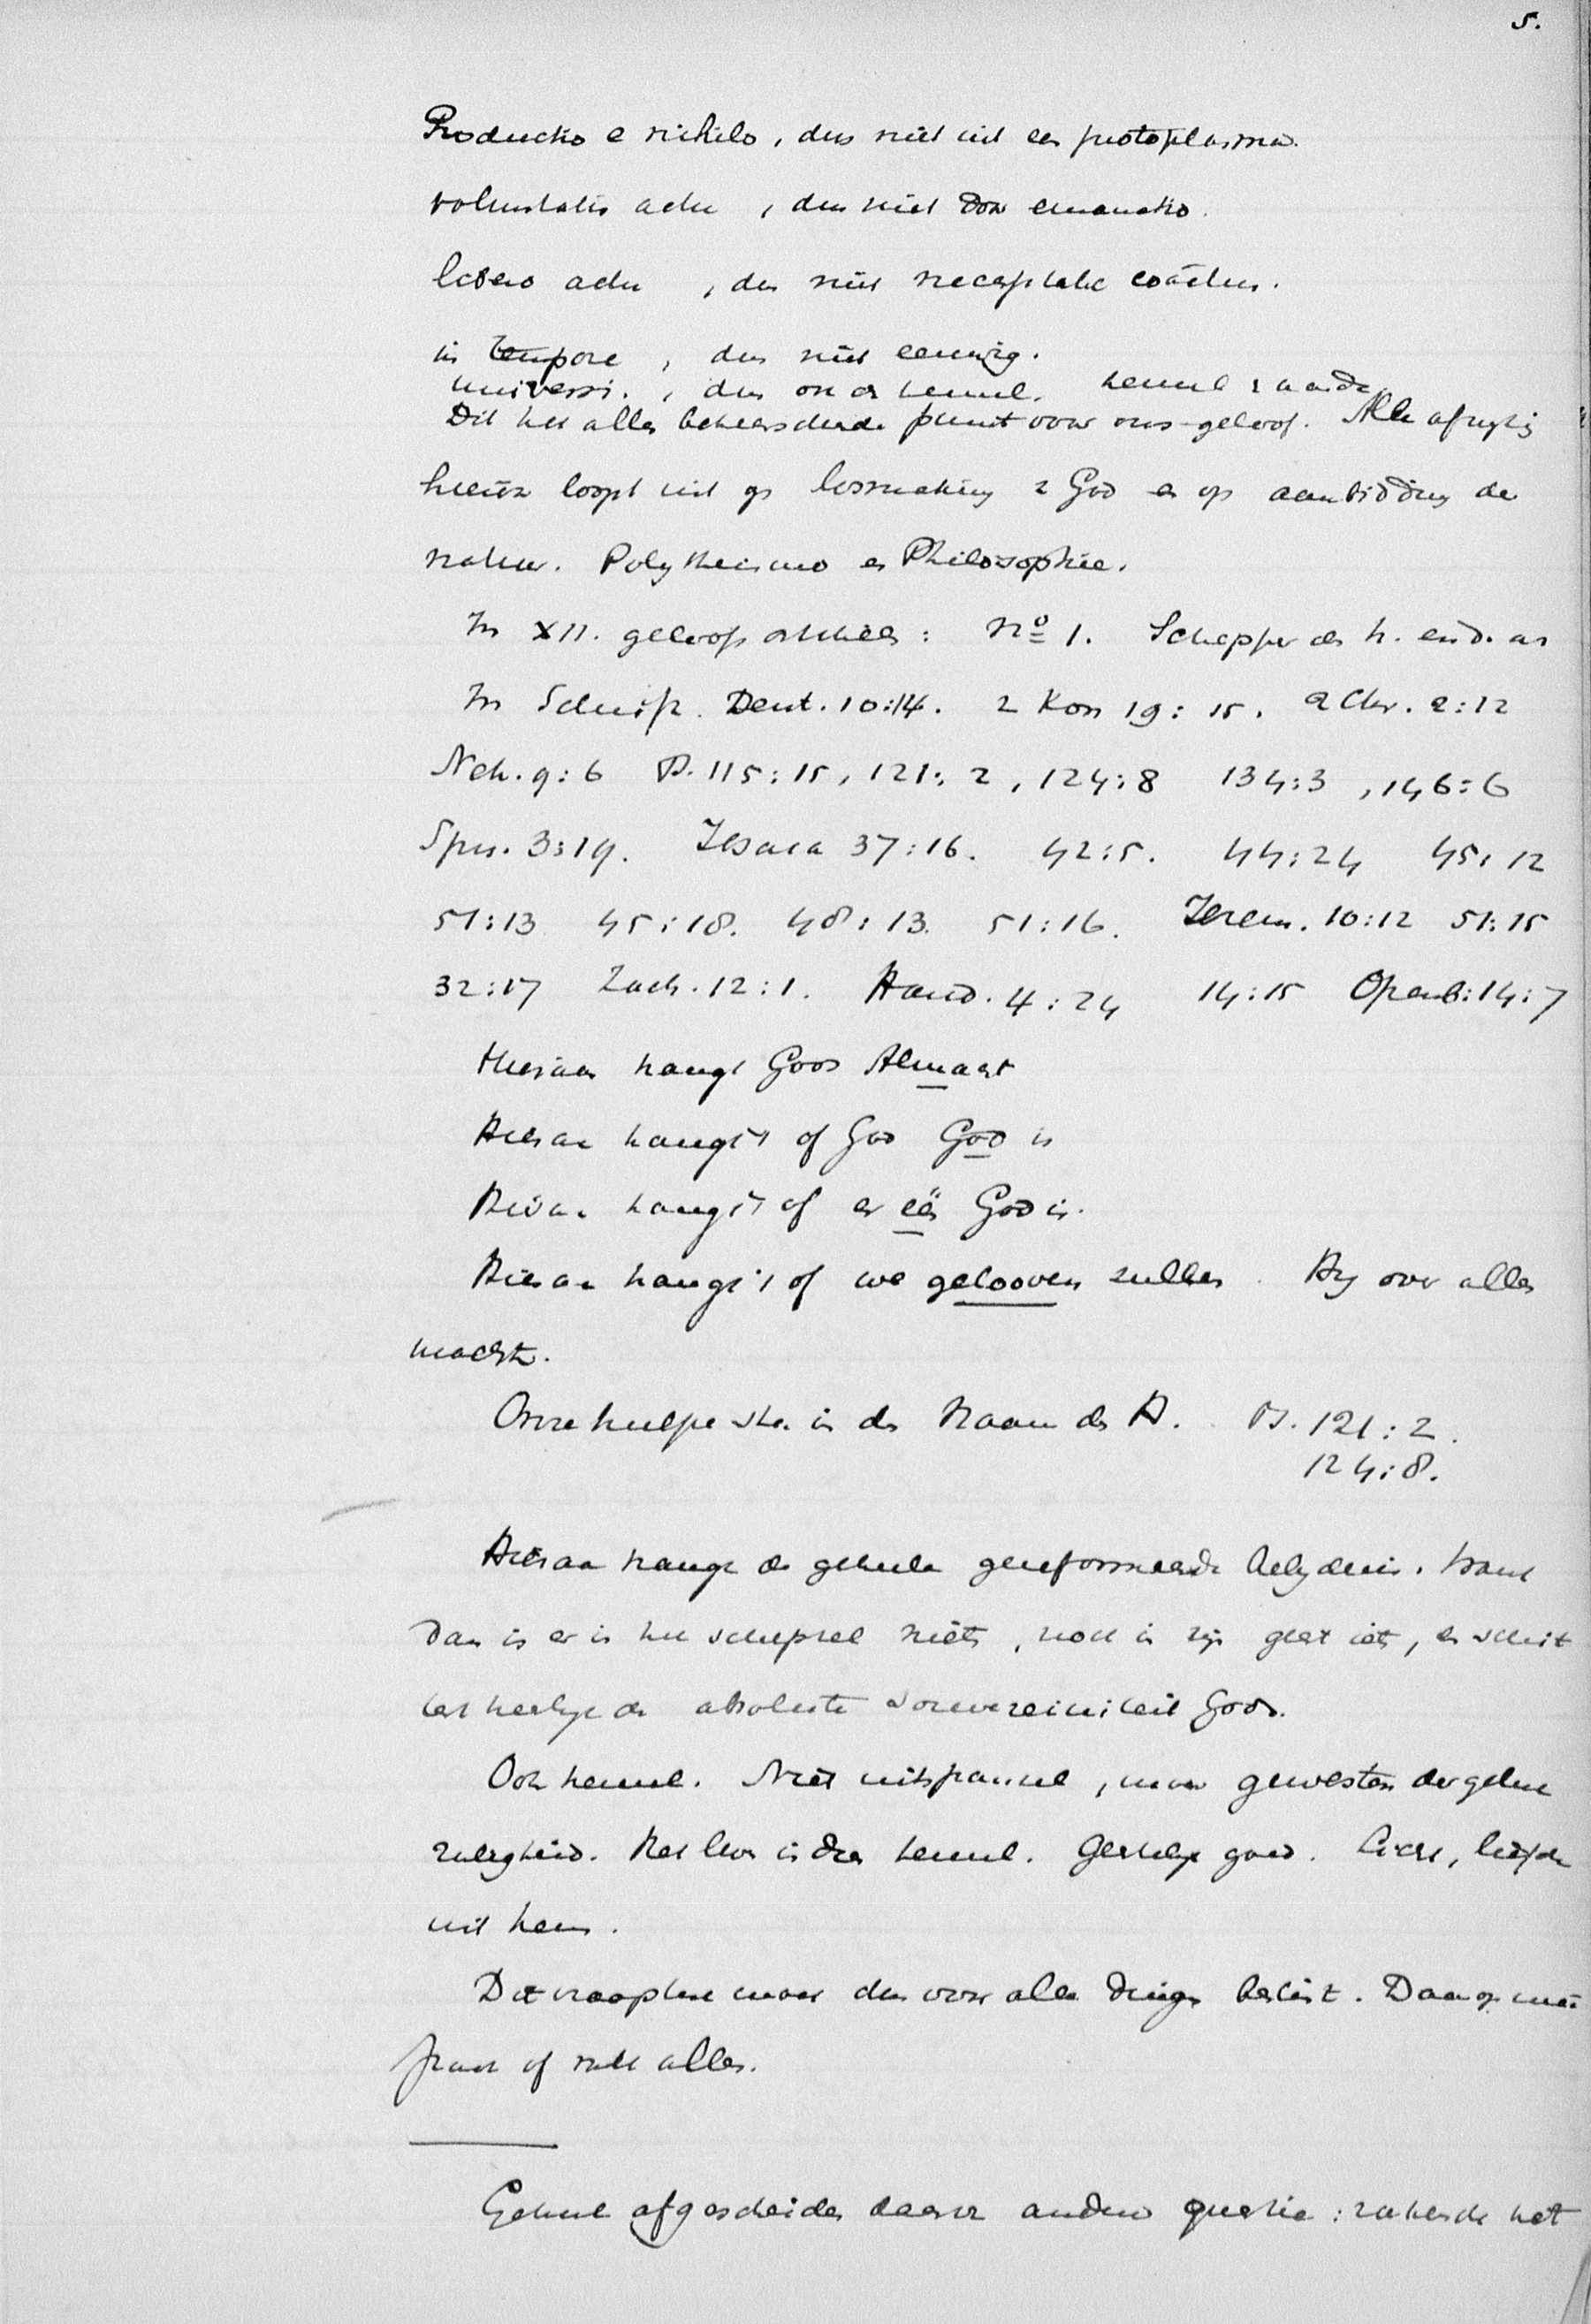 5.
Productio e nihilo, dus niet uit een protoplasma.
voluntatis actu, dus niet door emanatio.
libero actu, dus niet necessitate coactus.
in tempore, dus niet eeuwig.
universi., dus ook de hemel. hemel & aarde
Dit het alles beheerschende punt voor ons geloof. Alle afwijking
hiervan loopt uit op losmaking v God en op aanbidding der
natuur. Polytheisme en Philosophie.
In XII. geloofsartikelen: No 1. Schepper des h. en d. aa
In Schrift. Deut. 10:14. 2 Kon 19:15. 2 Chr. 2:12
Neh. 9:6 Ps. 115:15, 121:2, 124:8 134:3, 146:6
Spr. 3:19. Jesaia 37:16. 42:5. 44:24 45:12
51:13 45:18. 48:13. 51:16. Jerem. 10:12 51:15
32:17 Zach. 12:1. Hand. 4:24 14:15 Openb: 14:7
Hieraan hangt Gods Almacht
Hieraan hangt 't of God God is
Hieraan hangt 't of er één God is.
Hieraan hangt 't of we gelooven zullen. Hij over alles
macht.
Onze hulpe sta in den Naam des H. Ps. 121:2.
124:8.
Hieraan hangt de geheele gereformeerde belijdenis. Want
dan is er in het schepsel niets, noch in zijn geest iets, en sluit
de absolute souvereiniteit Gods.
Ook hemel. Niet uitspansel, maar gewesten der gelukzaligheid
zaligheid. Het leven in den hemel. Geestelijk goed. Licht, liefde
uit hem.
Dit vraagstuk moet dus voor alle dingen beslist. Daarop
staat of valt alles.
Geheel afgescheiden daarvan andere quaestie: rakende het